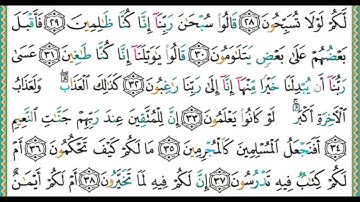 لَكُمْ لَوْلَا تُسَبِّحُونَ ﴿٢٨﴾ قَالُوا۟ سُبْحَٰنَ رَبِّنَآ إِنَّا كُنَّا ظَٰلِمِينَ ﴿٢٩﴾ فَأَقْبَلَ
بَعْضُهُمْ عَلَىٰ بَعْضٍ يَتَلَٰوَمُونَ ﴿٣٠﴾ قَالُوا۟ يَٰوَيْلَنَآ إِنَّا كُنَّا طَٰغِينَ ﴿٣١﴾ عَسَىٰ
رَبُّنَآ أَن يُبْدِلَنَا خَيْرًا مِّنْهَآ إِنَّآ إِلَىٰ رَبِّنَا رَٰغِبُونَ ﴿٣٢﴾ كَذَٰلِكَ ٱلْعَذَابُ ۖ وَلَعَذَابُ
ٱلْءَاخِرَةِ أَكْبَرُ ۚ لَوْ كَانُوا۟ يَعْلَمُونَ ﴿٣٣﴾ إِنَّ لِلْمُتَّقِينَ عِندَ رَبِّهِمْ جَنَّٰتِ ٱلنَّعِيمِ
﴿٣٤﴾ أَفَنَجْعَلُ ٱلْمُسْلِمِينَ كَٱلْمُجْرِمِينَ ﴿٣٥﴾ مَا لَكُمْ كَيْفَ تَحْكُمُونَ ﴿٣٦﴾ أَمْ
لَكُمْ كِتَٰبٌ فِيهِ تَدْرُسُونَ ﴿٣٧﴾ إِنَّ لَكُمْ فِيهِ لَمَا تَخَيَّرُونَ ﴿٣٨﴾ أَمْ لَكُمْ أَيْمَٰنٌ